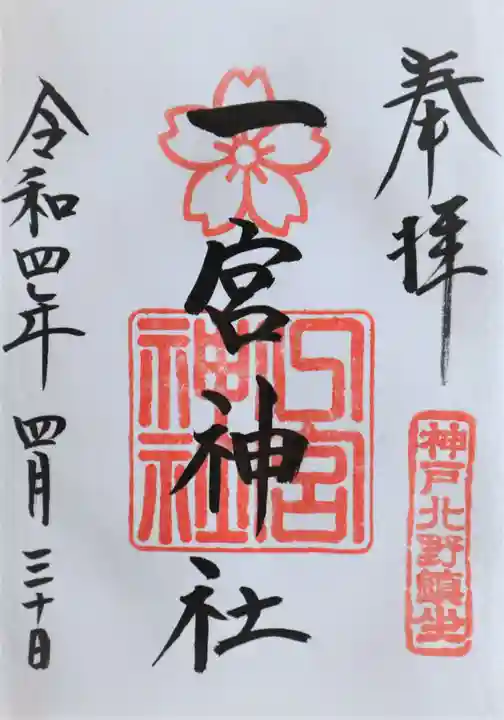 奉拝
神戸北野鎮坐
一宮神社
一宮神社
令和四年 四月 三十日